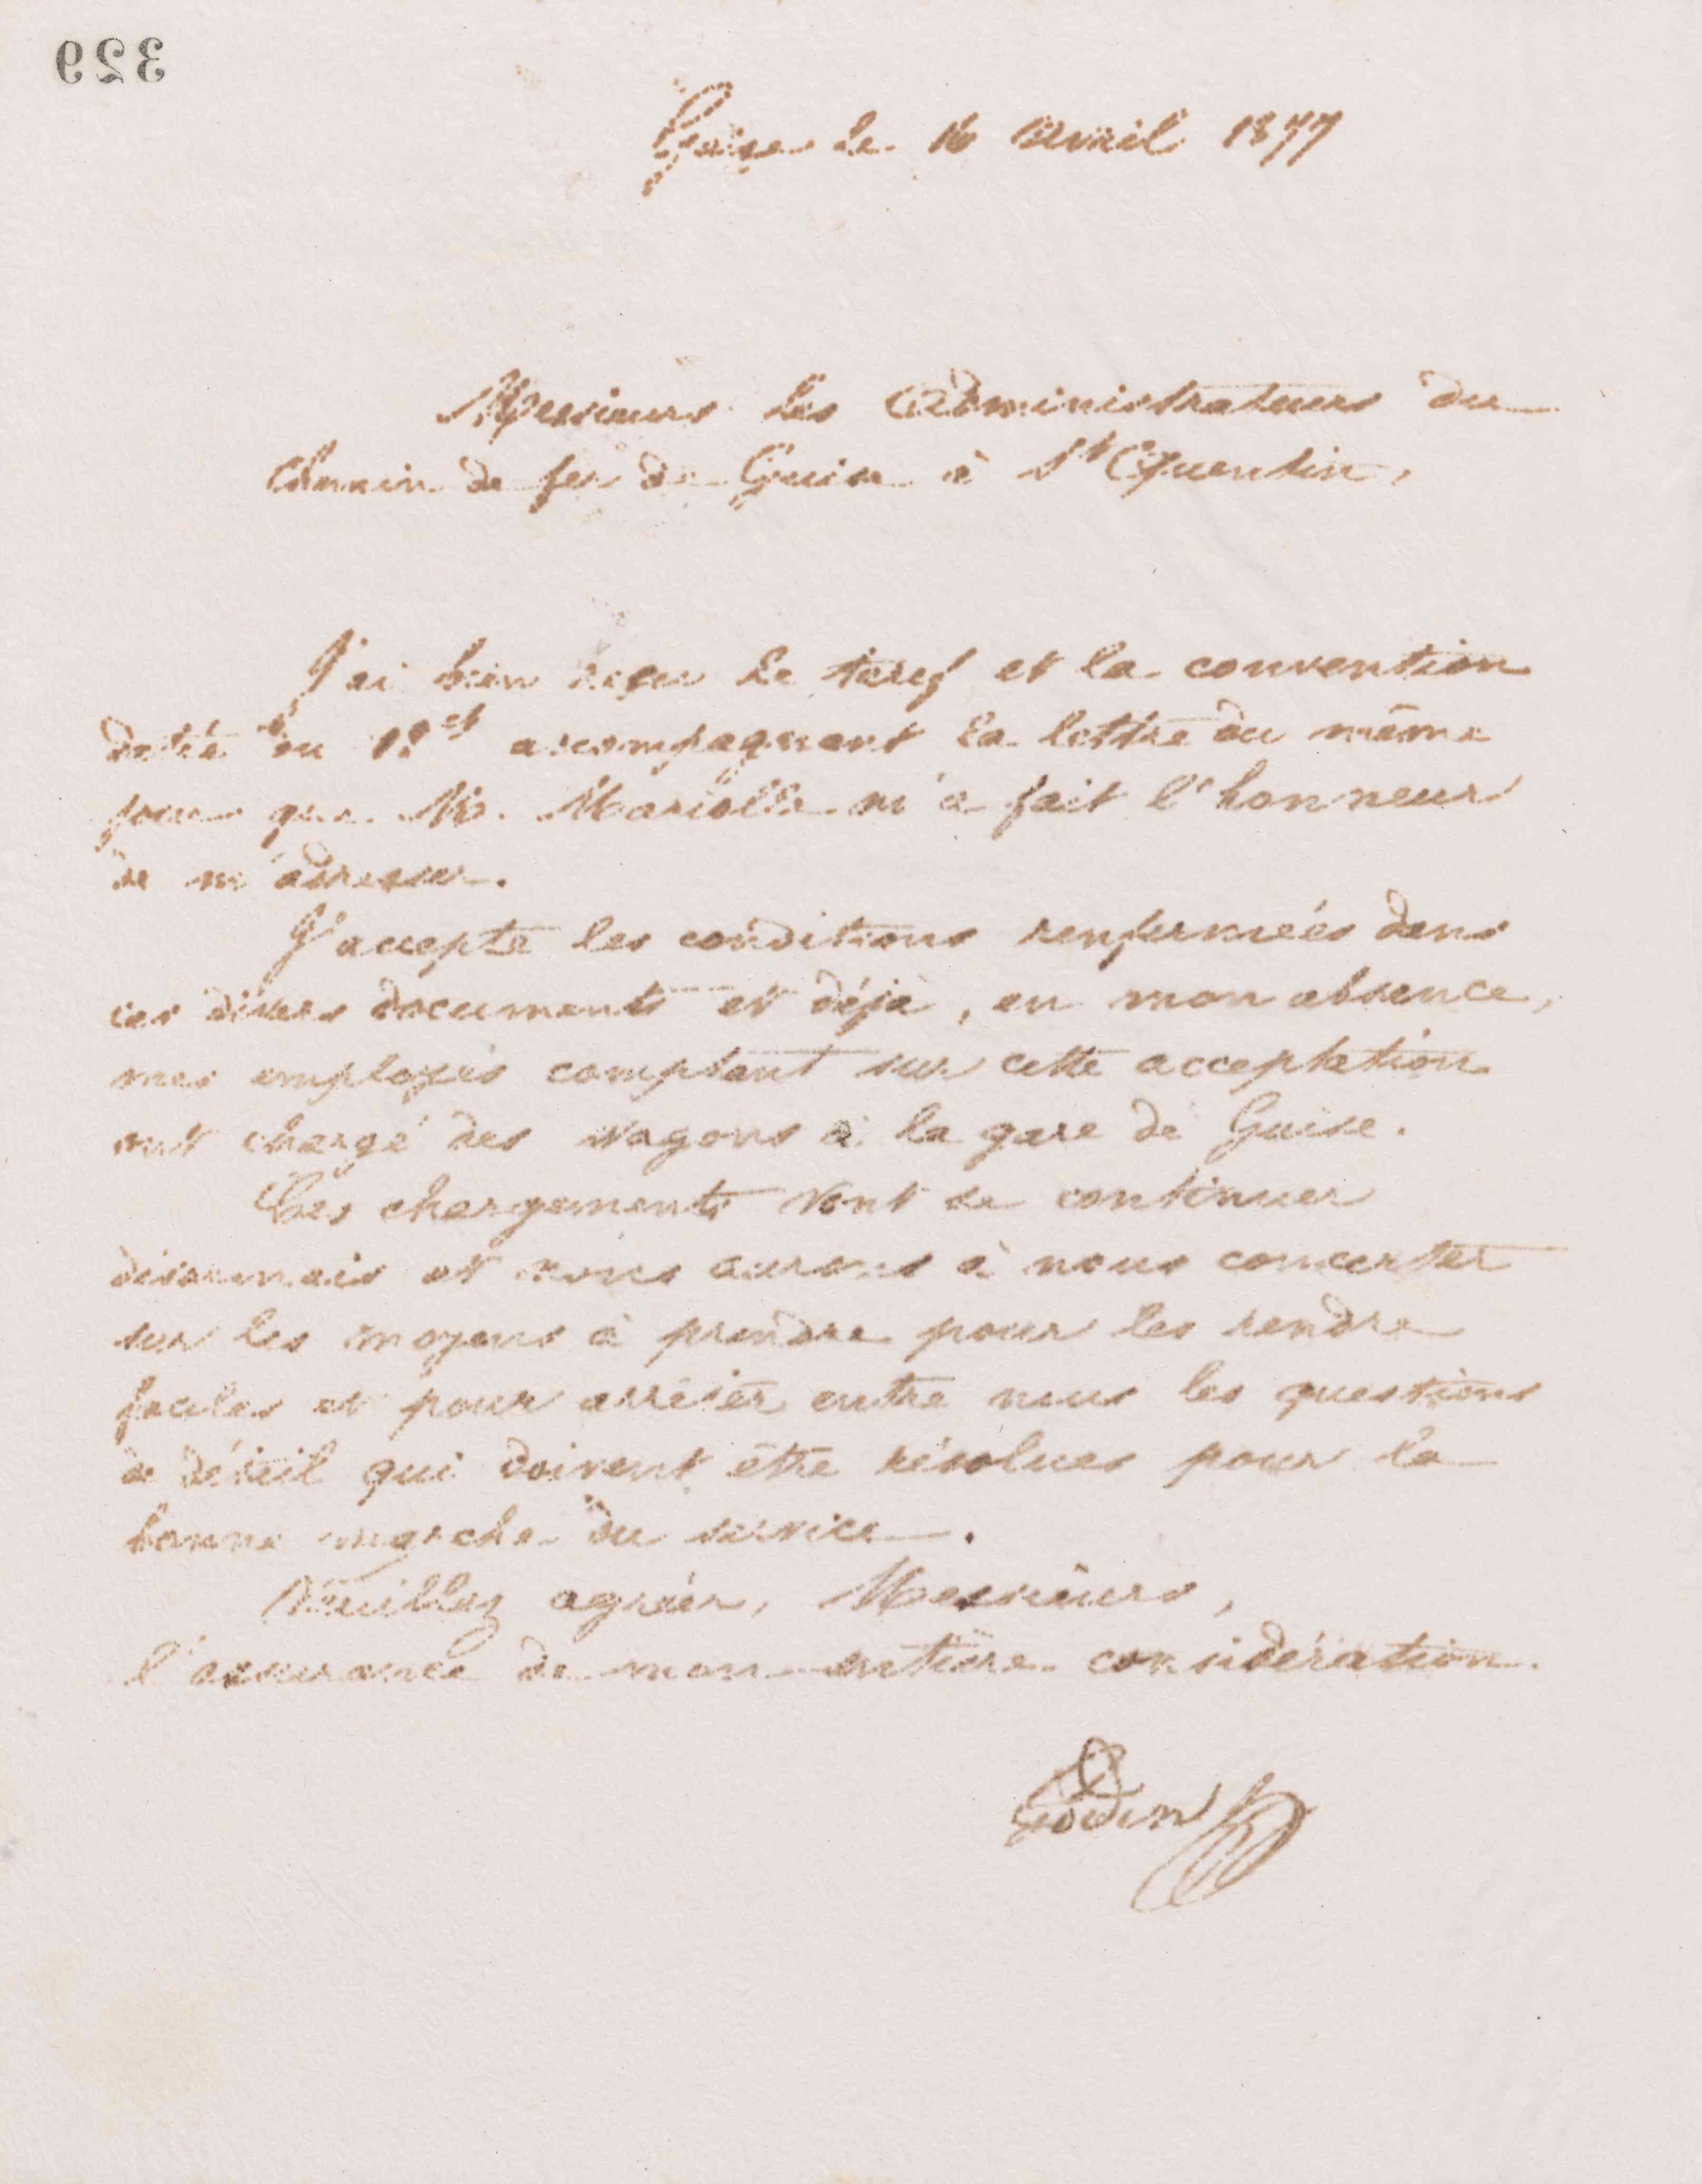 329
Guise le 16 Avril 1877
Messieurs les Administrateurs du
Chemin de fer de Guise à St Quentin,
J'ai bien reçu le tarif et la convention
datée du accompagnant la lettre du même
jour que M. Mariolle m'a fait l'honneur
de m'adresser.
J'accepte les conditions renfermées dans
ces divers documents et déjà, en mon absence,
mes employés comptant sur cette acceptation
ont chargé des wagons à la gare de Guise.
Ces chargements vont se continuer
désormais et nous aurons à nous concerter
sur les moyens à prendre pour les rendre
faciles et pour arrêter entre nous les questions
de détail qui doivent être résolues pour la
bonne marche du service.
Veuillez agréer, Messieurs,
l'assurance de mon entière considération.
Godin